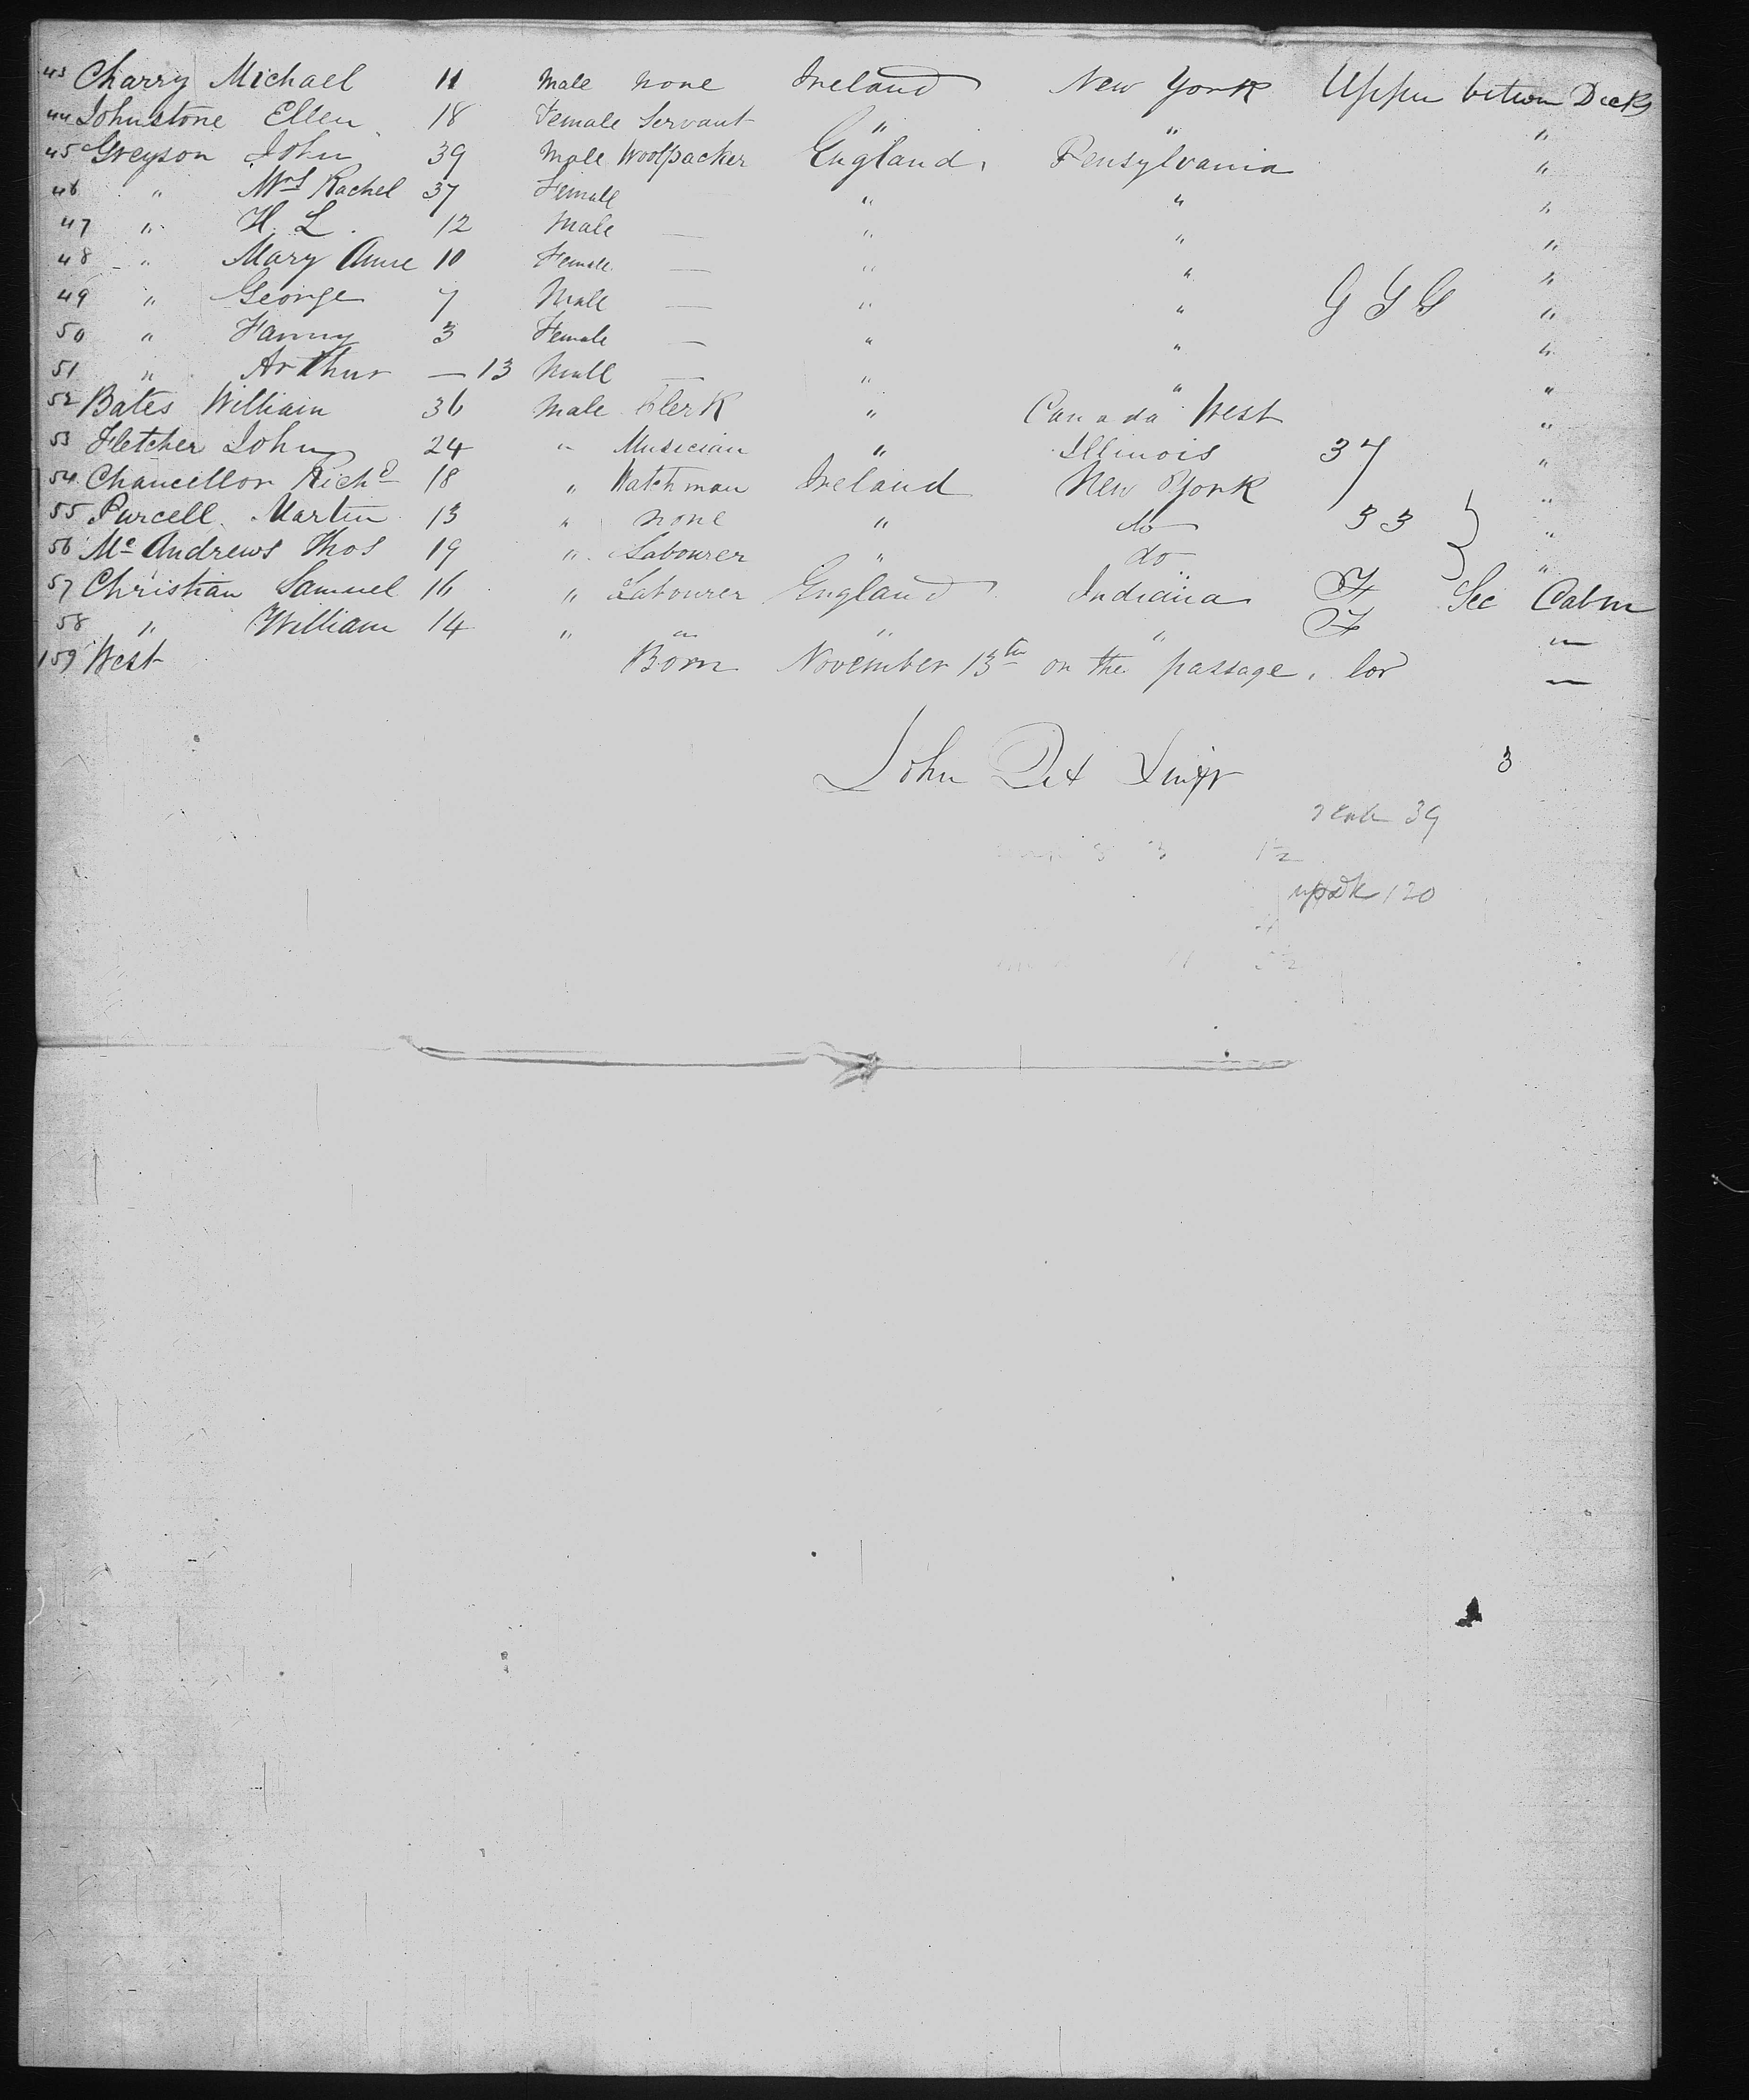 43 Charry Michael 11 Male none Ireland New York Upper between Decks
44 Johnstone Ellen 18 Female Servant " " "
45 Greyson John 39 Male Woolpacker England Pensylvania "
46 " Mrs Rachel 37 Female " " "
47 " H. L. 12 Male — " " "
48 " Mary Anne 10 Female — " " "
49 " George 7 Male — " " G G G "
50 " Fanny 3 Female — " " "
51 " Arthur — 13 Male — " " "
52 Bates William 36 Male Clerk " Canada West "
53 Fletcher John 24 " Musician " Illinois 37 "
54 Chancellor Richd 18 " Watchman Ireland New York "
55 Purcell Martin 13 " none " do 33 "
56 Mc Andrews Thos 19 " Labourer " do "
57 Christian Samuel 16 " Labourer England Indiana F Sec Cabin
58 " William 14 " " " " F "
159 West Born November 13th on the passage. "
John
3
39
12
updk 120